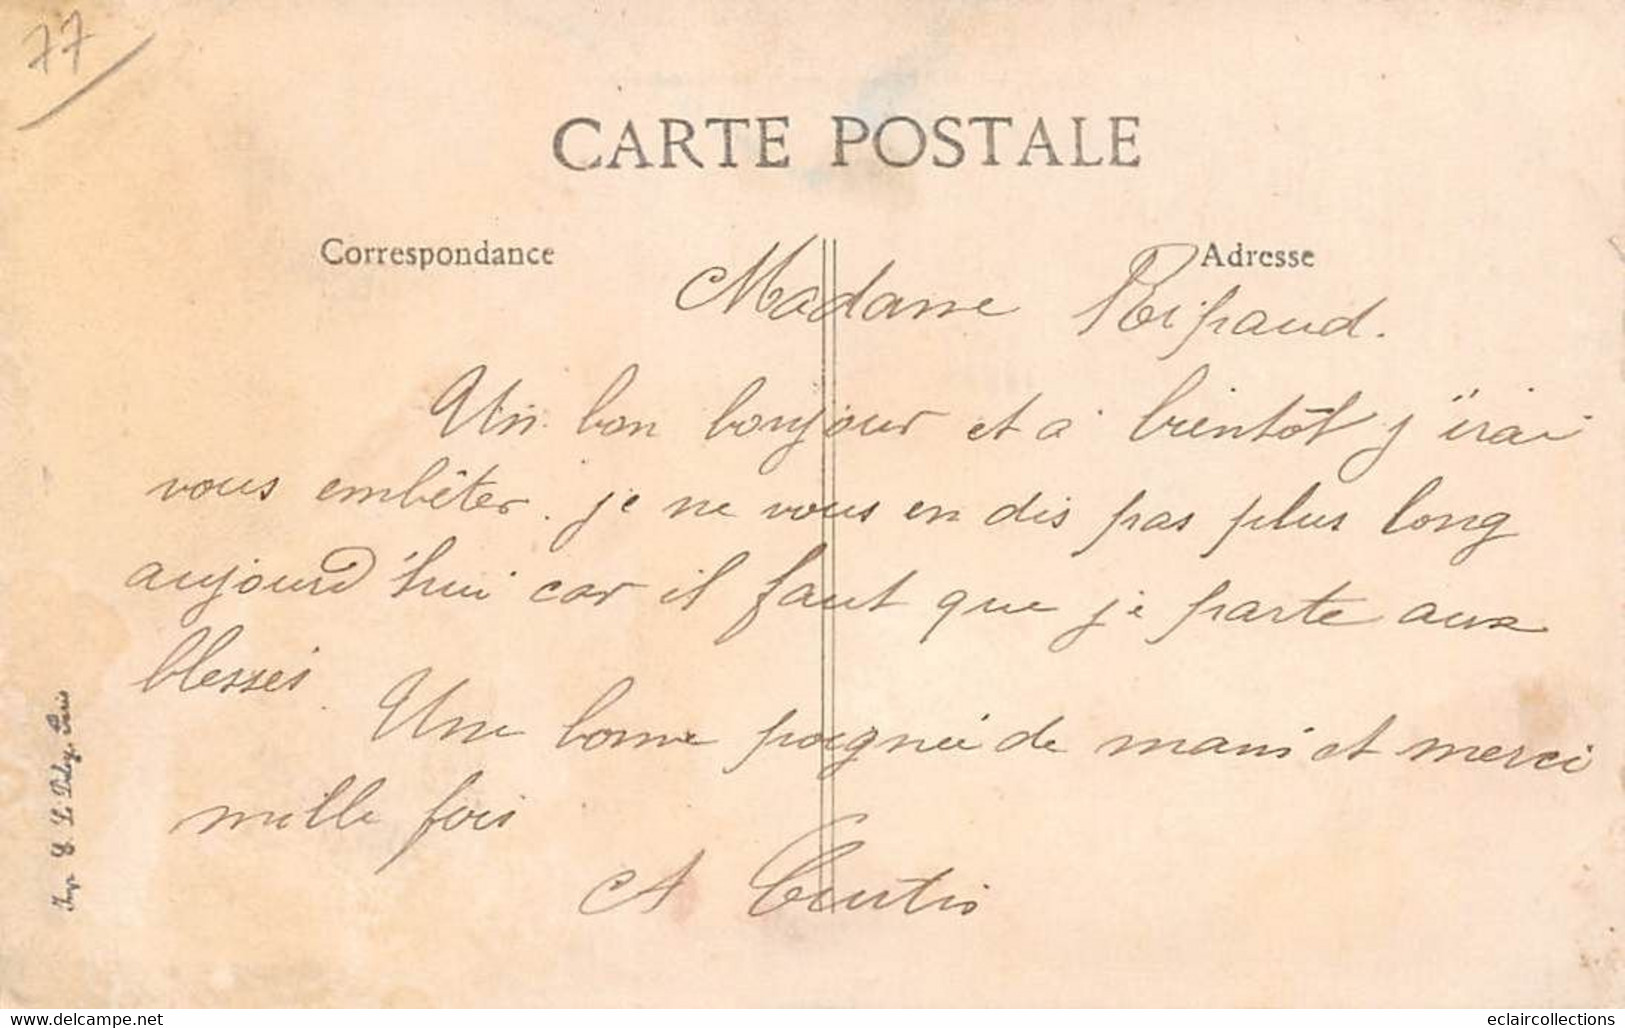 77
CARTE POSTALE
Correspondance
Adresse
Madame Ripaud.
Un bon bonjour et à bientôt j'irai
vous embêter. je ne vous en dis pas plus long
aujourd'hui car il faut que je parte aux
blessés. Une bonne poignée de main et merci
mille fois
A Curtis
Imp. E. Le Deley, Paris
www.delcampe.net
eclaircollections